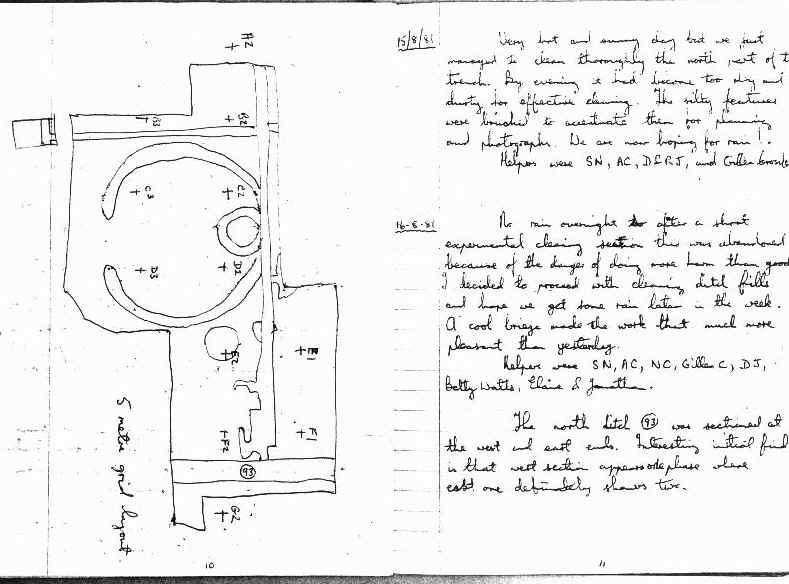 A2
B3
B2
C3
C2
D3
D2
E2
E1
F2
F1
93
G2
5 metre grid layout
10
15/8/81
Very hot and sunny day but we just
managed to clean thoroughly the north part of t
trench. By evening it had become too dry and
dusty for effective cleaning. The silty features
were brushed to accentuate them for planning
and photographs. We are now hoping for rain!.
Helpers were SN, AC, D&RJ, and Gillen
16-8-81
No rain overnight so after a short
experimental cleaning section this was abandoned
because of the danger of doing more harm than good
I decided to proceed with cleaning ditch fills
and hope we get some rain later in the week.
A cool breeze made the work that much more
pleasant than yesterday.
Helpers were SN, AC, NC, Gillen C, DJ,
Betty Watts, Elaine & Jonathan.
The north ditch 93 was sectioned at
the west and east ends. Interesting initial find
is that west section appears one phase where
east one definately shows two.
11